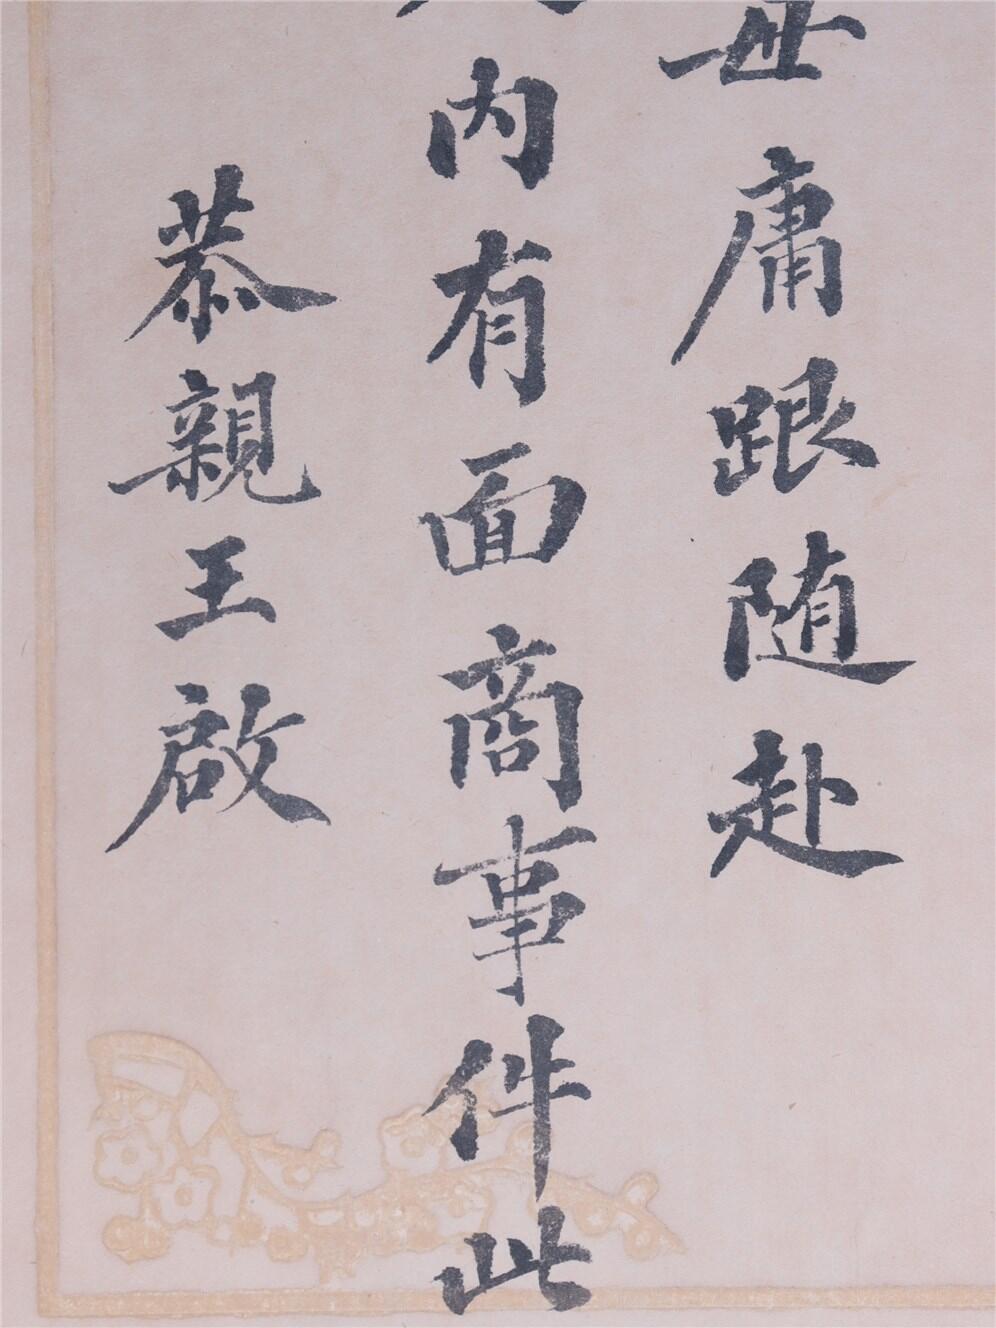 毋庸跟随赴
内有面商事件此
恭親王啟